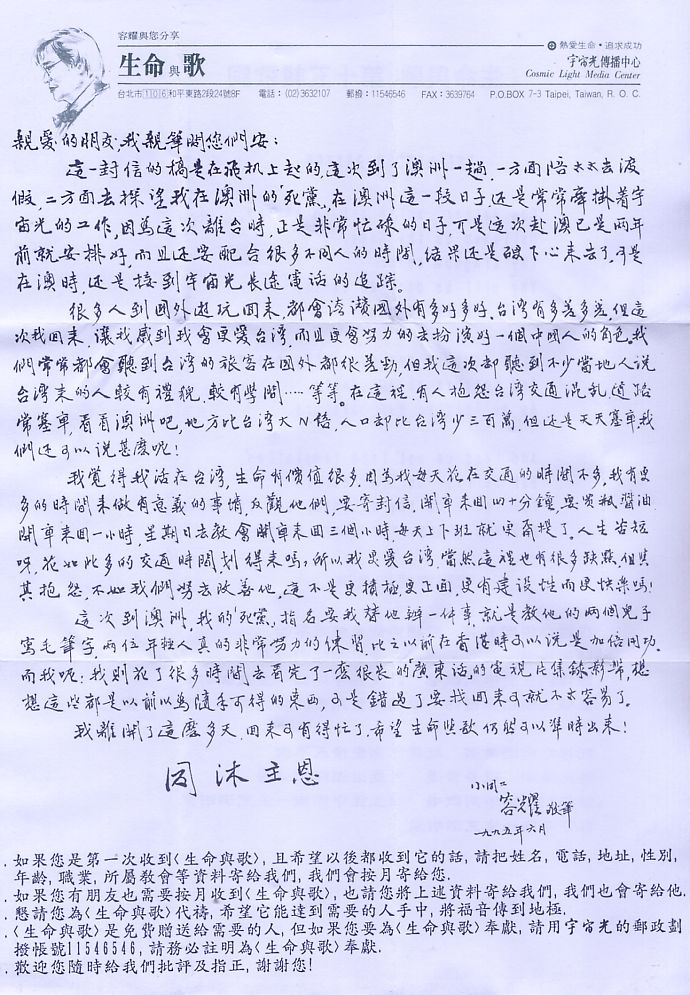 容耀與您分享
生命與歌
熱愛生命・追求成功
宇宙光傳播中心
Cosmic Light Media Center
台北市10616和平東路2段24號8F 電話：(02)3632107 郵撥：11546546 FAX：3639764 P.O.BOX 7-3 Taipei, Taiwan, R. O. C.
親愛的朋友，我親筆問您們安：
這一封信的稿是在飛机上起的，這次到了澳洲一趟，一方面陪太太去渡
假，二方面去探望我在澳洲的「死黨」。在澳洲這一段日子，還是常常牽掛着宇
宙光的工作，因為這次離台時，正是非常忙碌的日子，可是這次赴澳已是兩年
前就安排好，而且还要配合很多不同人的時間，結果还是硬下心來去了，可是
在澳時，还是接到宇宙光長途電話的追踪。
很多人到國外遊玩回來，都會誇讚國外有多好多好，台湾有多差多差，但這
次我回來，讓我感到我會更愛台湾，而且更會努力的去扮演好一個中國人的角色。我
們常常都會聽到台湾的旅客在國外都很差勁，但我這次却聽到不少當地人说
台湾來的人較有禮貌，較有學問……等等。在這裡，有人抱怨台湾交通混乱，道路
常塞車，看看澳洲吧，地方比台湾大N倍，人口却比台湾少三百萬，但还是天天塞車，我
們还可以说甚麼呢！
我覺得我活在台湾，生命有價值很多，因為我每天花在交通的時間不多，我有更
多的時間來做有意義的事情，反觀他們，要寄封信，開車來回四十分鐘，要買瓶醬油
開車來回一小時，星期日去教會開車來回三個小時，每天上下班就更甭提了。人生苦短
呀，花如此多的交通時間，划得來嗎？所以我更愛台湾，當然這裡也有很多缺點，但與
其抱怨，不如我們努力去改善他，這不是更積極更正面，更有建设性而更快樂嗎！
這次到澳洲，我的「死黨」指名要我替他辦一件事，就是教他的两個兒子
寫毛筆字，兩位年輕人真的非常努力的練習，比之以前在香港時可以说是加倍用功。
而我呢？我則花了很多時間去看完了一套很長的「廣東话」的電視片集錄影帶，想
想這些都是以前以為隨手可得的東西，可是錯過了要找回來可就不太容易了。
我離開了這麼多天，回來可有得忙了，希望生命與歌仍然可以準時出來！
同沐主恩
小同工
容耀敬筆
一九九五年六月
．如果您是第一次收到〈生命與歌〉, 且希望以後都收到它的話, 請把姓名, 電話, 地址, 性別,
年齡, 職業, 所屬敎會等資料寄給我們, 我們會按月寄給您.
．如果您有朋友也需要按月收到〈生命與歌〉, 也請您將上述資料寄給我們, 我們也會寄給他.
．懇請您為〈生命與歌〉代禱, 希望它能達到需要的人手中, 將福音傳到地極.
．〈生命與歌〉是免費贈送給需要的人, 但如果您要為〈生命與歌〉奉獻, 請用宇宙光的郵政劃
撥帳號11546546, 請務必註明為〈生命與歌〉奉獻.
．歡迎您隨時給我們批評及指正, 謝謝您!